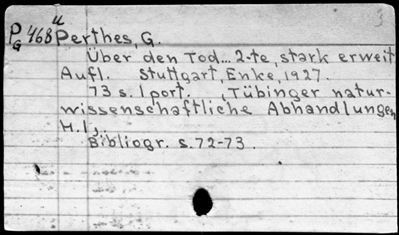 u
Pg 468 Perthes, G.
Über den Tod... 2-te, stark erweit
Aufl. Stuttgart, Enke, 1927.
73 s. 1 port. , Tübinger natur-
wissenschaftliche Abhandlungen
H. 1,.
Bibliogr. s. 72-73.